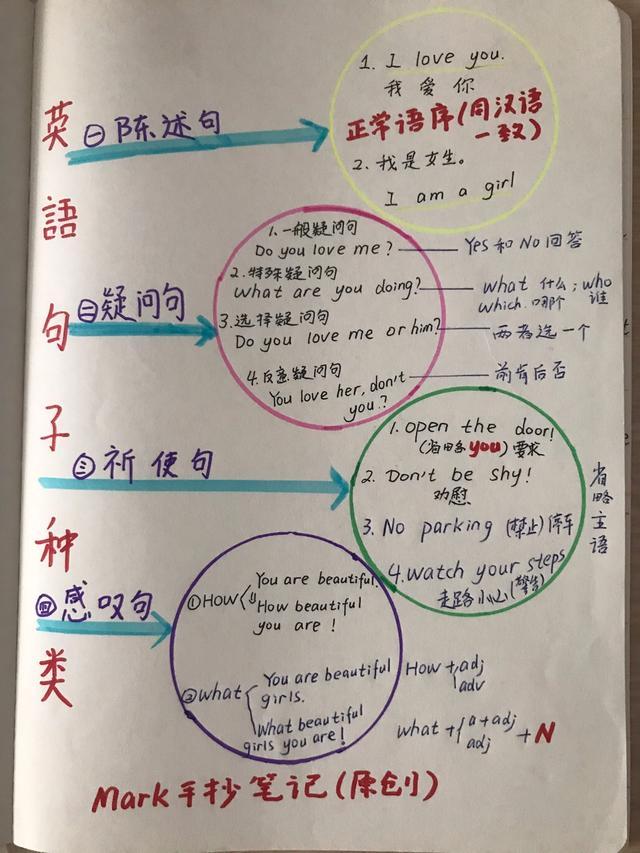 英語句子种类
㊀陈述句
1. I love you.
我爱你
正常语序(同汉语
一致)
2. 我是女生。
I am a girl
㊁疑问句
1.一般疑问句
Do you love me?
Yes和No回答
2.特殊疑问句
What are you doing?
what 什么; who 谁
which. 哪个
3.选择疑问句
Do you love me or him?
两者选一个
4.反意疑问句
You love her, don't
you.?
前肯后否
㊂祈使句
1. open the door!
(省略you)要求
2. Don't be shy!
劝慰
3. No parking (禁止)停车
4. watch your steps
走路小心(警告)
省略主语
㊃感叹句
①HOW
You are beautiful.
How beautiful
you are !
②what
You are beautiful
girls.
What beautiful
girls you are!
How + adj
adv
what + a+adj
adj
+ N
Mark手抄笔记(原创)